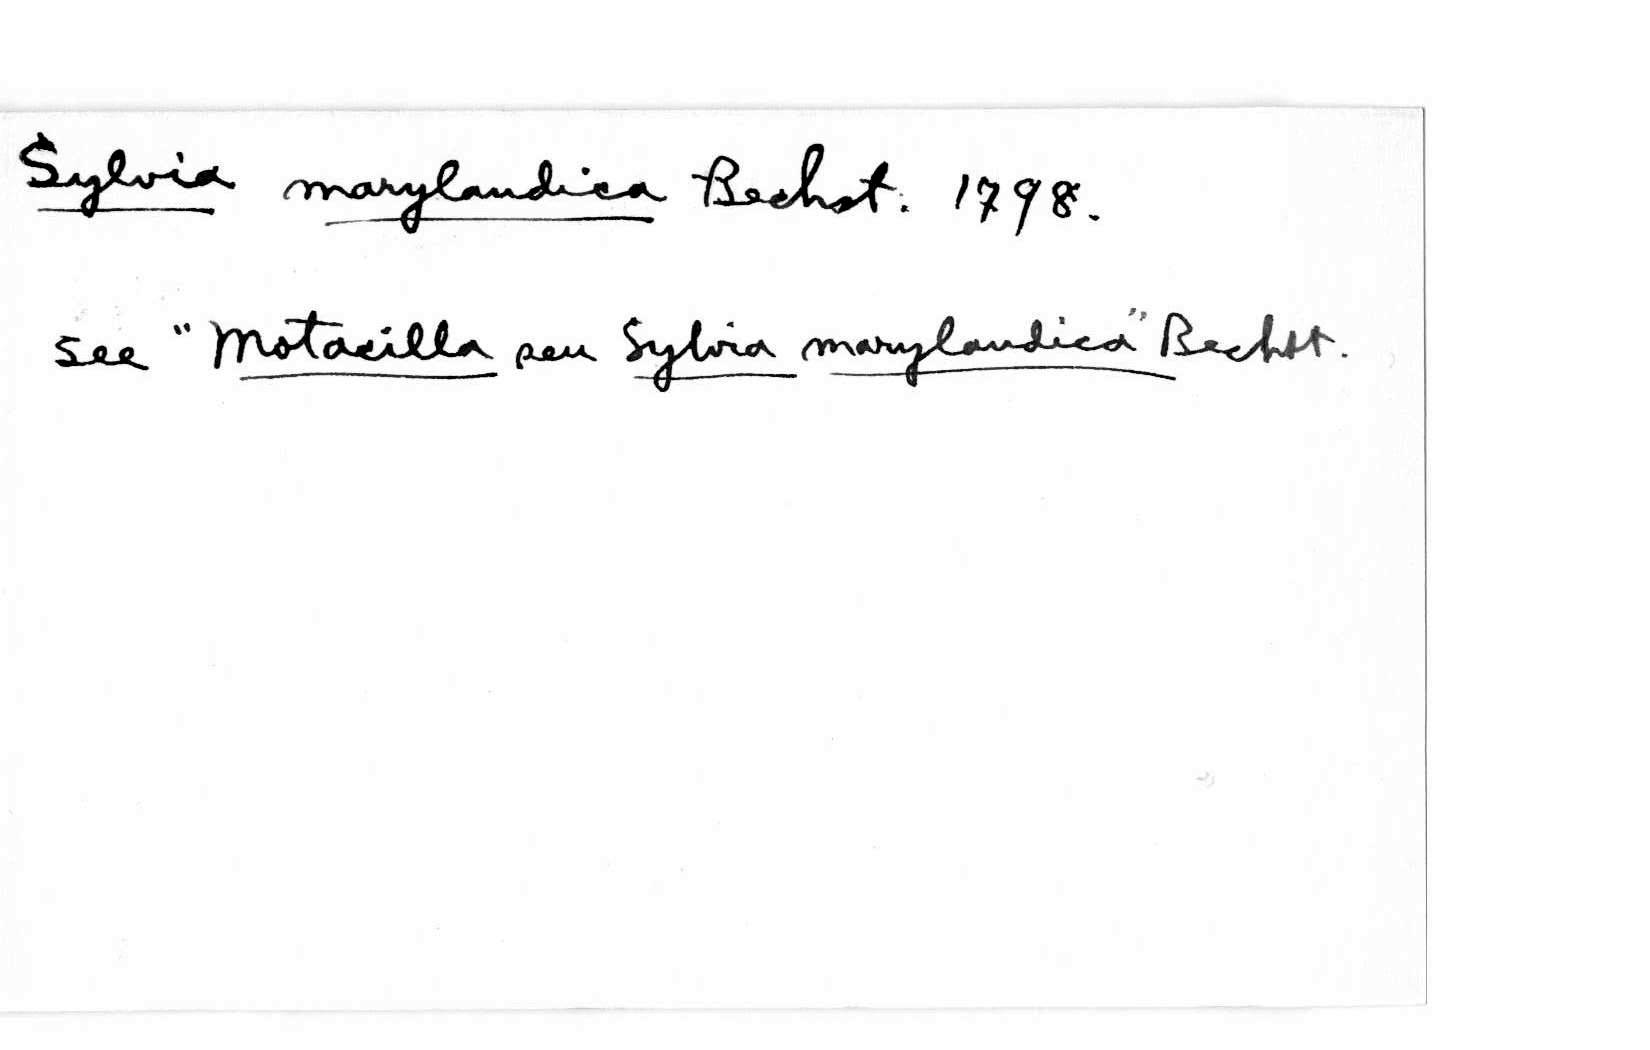 Sylvia marylandica Bechst. 1798.
see "Motacilla seu Sylvia marylandica" Bechst.